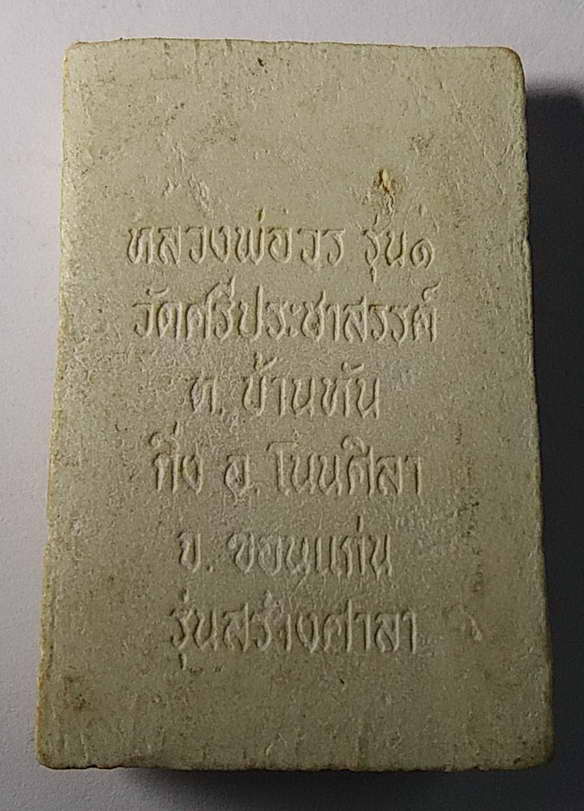 หลวงพ่อวร รุ่น๑
วัดศรีประชาสรรค์
ต. บ้านหัน
กิ่ง อ. โนนศิลา
จ. ขอนแก่น
รุ่นสร้างศาลา